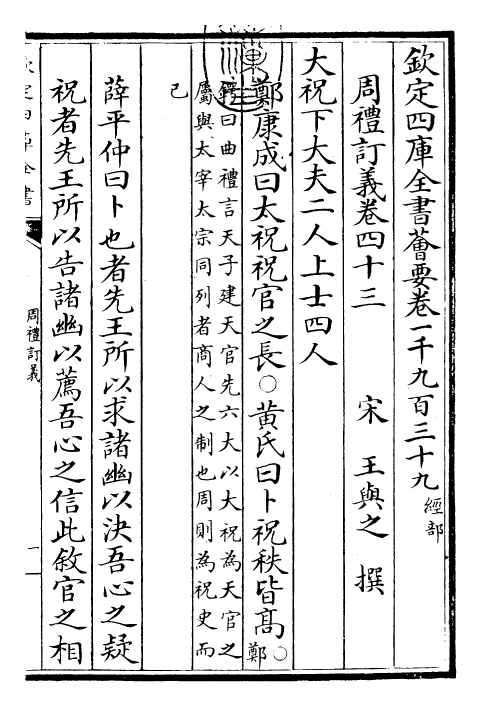 欽定四庫全書薈要卷一千九百三十九 經部
周禮訂義卷四十三
宋 王與之 撰
大祝下大夫二人上士四人
鄭康成曰太祝祝官之長○黄氏曰卜祝秩皆髙○鄭
鍔曰曲禮言天子建天官先六大以大祝為天官之
屬與太宰太宗同列者商人之制也周則為祝史而
已
薛平仲曰卜也者先王所以求諸幽以決吾心之疑
祝者先王所以告諸幽以薦吾心之信此敘官之相
欽定四庫全書
周禮訂義
一